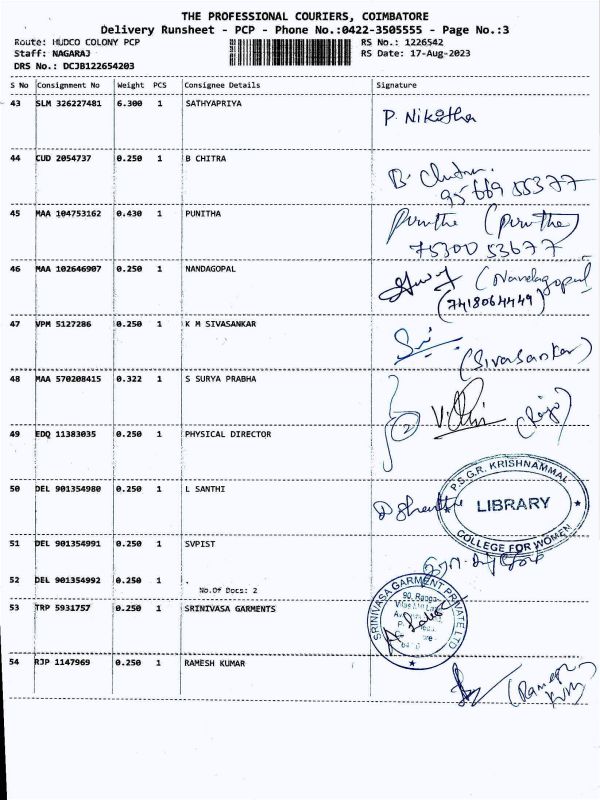 THE PROFESSIONAL COURIERS, COIMBATORE
Delivery Runsheet - PCP - Phone No.:0422-3505555 - Page No.:3
Route: HUDCO COLONY PCP RS No.: 1226542
Staff: NAGARAJ RS Date: 17-Aug-2023
DRS No.: DCJB122654203
S No Consignment No Weight PCS Consignee Details Signature
43 SLM 326227481 6.300 1 SATHYAPRIYA
P. Nikitha
44 CUD 2054737 0.250 1 B CHITRA
B. Chitra.
95669 55377
45 MAA 104753162 0.430 1 PUNITHA
Punithe (Punithe)
75300 53677
46 MAA 102646907 0.250 1 NANDAGOPAL
(Nandagopal
(7418064449)
47 VPM 5127286 0.250 1 K M SIVASANKAR
(Sivasankar)
48 MAA 570208415 0.322 1 S SURYA PRABHA
2
49 EDQ 11383035 0.250 1 PHYSICAL DIRECTOR
50 DEL 901354980 0.250 1 L SANTHI
P.S.G.R. KRISHNAMMAL
LIBRARY
COLLEGE FOR WOMEN
51 DEL 901354991 0.250 1 SVPIST
52 DEL 901354992 0.250 1 .
No.Of Docs: 2
53 TRP 5931757 0.250 1 SRINIVASA GARMENTS
SRINIVASA GARMENT PRIVATE LTD
90, Ranga
54 RJP 1147969 0.250 1 RAMESH KUMAR
(Ramesh